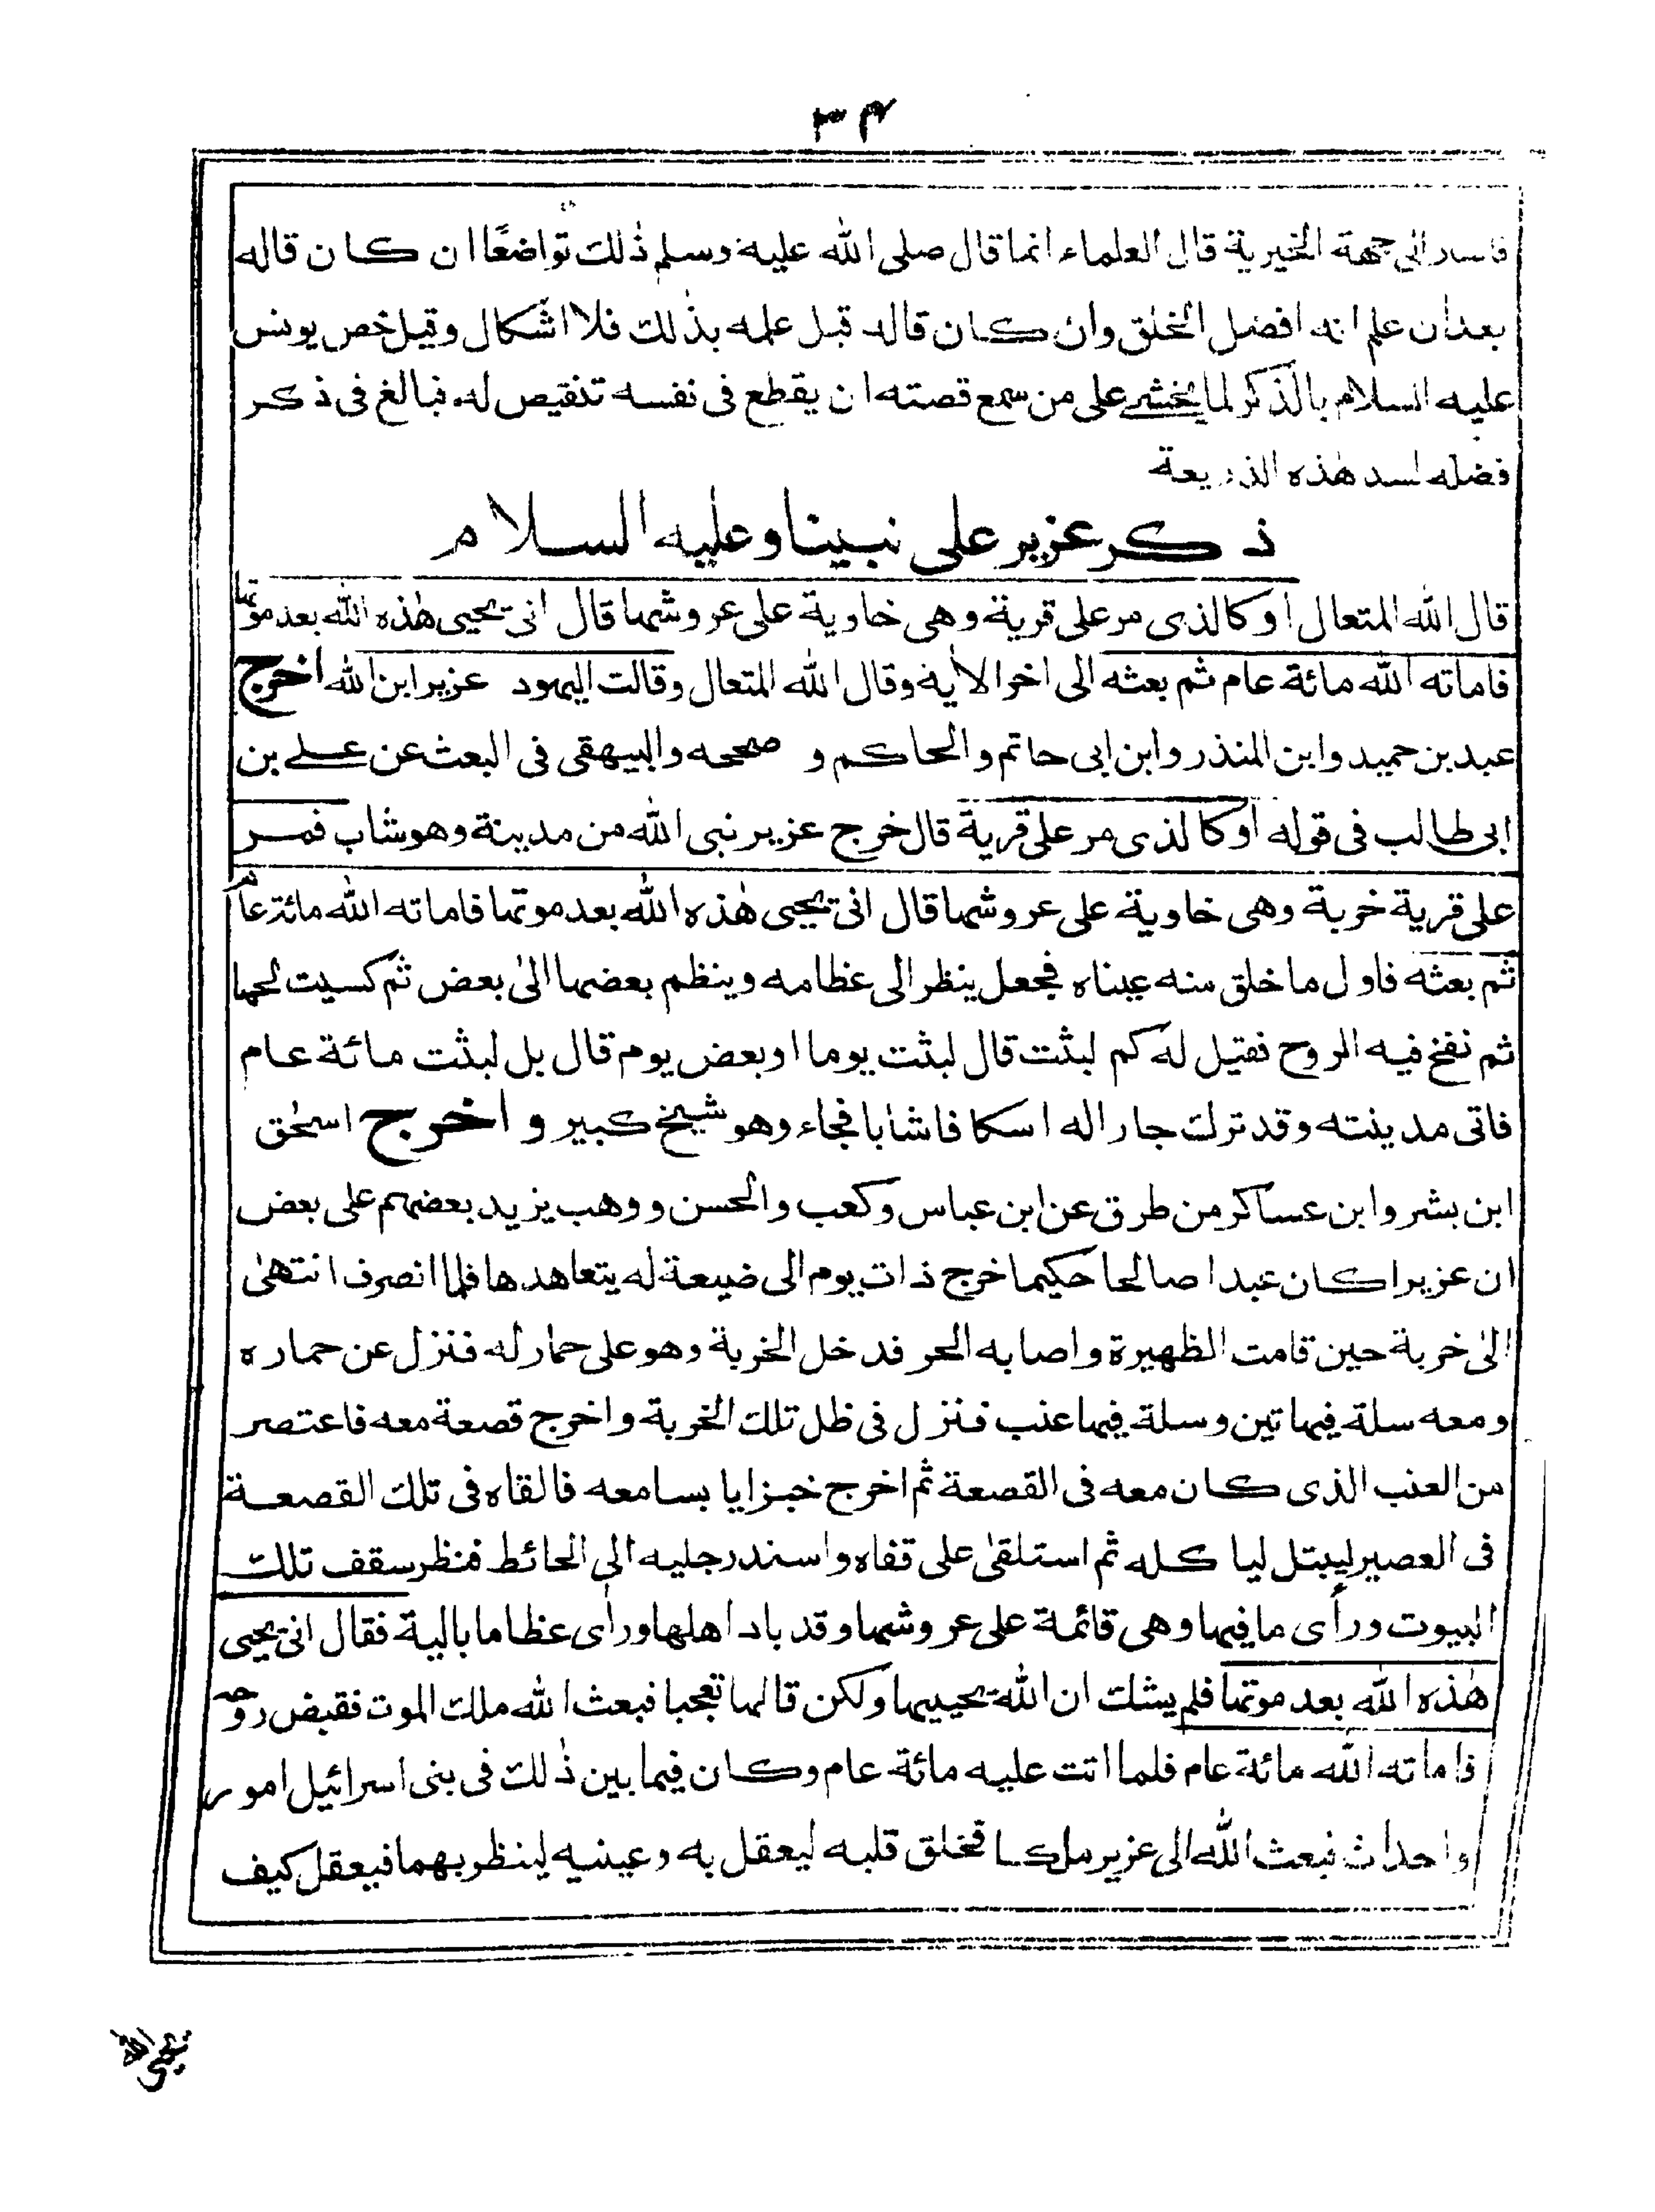 ٣٤
فاسد الى جهة الخيرية قال العلماء انما قال صلى الله عليه وسلم ذٰلك تواضعًا ان كان قاله
بعد ان علم انه افضل الخلق وان كان قاله قبل علمه بذٰلك فلا اشكال وقيل خص يونس
عليه السلام بالذكر لما يخشى على من سمع قصته ان يقطع فى نفسه تنقيص له فبالغ فى ذكر
فضله لسد هٰذه الذريعة
ذكر عزير على نبينا وعليه السلام
قال الله المتعال او كالذى مر على قرية وهى خاوية على عروشها قال انى يحيى هٰذه الله بعد موتها
فاماته الله مائة عام ثم بعثه الى اخر الاٰية وقال الله المتعال وقالت اليهود عزير ابن الله اخرج
عبد بن حميد وابن المنذر وابن ابى حاتم والحاكم و صححه والبيهقى فى البعث عن على بن
ابى طالب فى قوله او كالذى مر على قرية قال خرج عزير نبى الله من مدينة وهو شاب فمر
على قرية خربة وهى خاوية على عروشها قال انى يحيى هٰذه الله بعد موتها فاماته الله مائة عام
ثم بعثه فاول ما خلق منه عيناه فجعل ينظر الى عظامه وينظم بعضها الىٰ بعض ثم كسيت لحما
ثم نفخ فيه الروح فقيل له كم لبثت قال لبثت يوما او بعض يوم قال بل لبثت مائة عام
فاتى مدينته وقد ترك جارا له اسكافا شابا فجاء وهو شيخ كبير و اخرج اسحٰق
ابن بشر وابن عساكر من طرق عن ابن عباس وكعب والحسن ووهب يزيد بعضهم على بعض
ان عزيرا كان عبدا صالحا حكيما خرج ذات يوم الى ضيعة له يتعاهدها فلما انصرف انتهىٰ
الىٰ خربة حين قامت الظهيرة واصابه الحر فدخل الخربة وهو على حمار له فنزل عن حماره
ومعه سلة فيها تين وسلة فيها عنب فنزل فى ظل تلك الخربة واخرج قصعة معه فاعتصر
من العنب الذى كان معه فى القصعة ثم اخرج خبزا يابسا معه فالقاه فى تلك القصعة
فى العصير ليبتل ليا كله ثم استلقىٰ على قفاه واسند رجليه الى الحائط فنظر سقف تلك
البيوت ورأى ما فيها وهى قائمة على عروشها وقد باد اهلها ورأى عظاما بالية فقال انى يحيى
هٰذه الله بعد موتها فلم يشك ان الله يحييها ولكن قالها تعجبا فبعث الله ملك الموت فقبض روحه
فاماته الله مائة عام فلما اتت عليه مائة عام وكان فيما بين ذٰلك فى بنى اسرائيل امور
واحداث فبعث الله الى عزير ملكا فخلق قلبه ليعقل به وعينيه لينظر بهما فيعقل كيف
يحيى الله